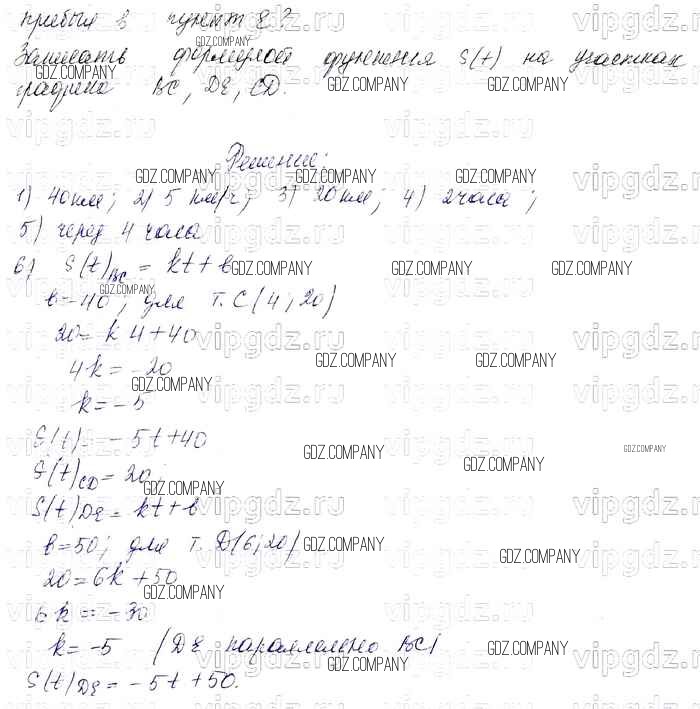 прибыл в пункт E?
Записать формулой функция S(t) на участках
графика BC, DE, CD.
Решение:
1) 40 км; 2) 5 км/ч; 3) 20 км; 4) 2 часа;
5) через 4 часа
6) S(t)BC = kt + b
b = 40; для т. C(4; 20)
20 = k 4 + 40
4k = -20
k = -5
S(t) = -5t + 40
S(t)CD = 20;
S(t)DE = kt + b
b = 50; для т. D(6; 20)
20 = 6k + 50
6k = -30
k = -5 (DE параллельно BC)
S(t)DE = -5t + 50.
GDZ.COMPANY
vipgdz.ru